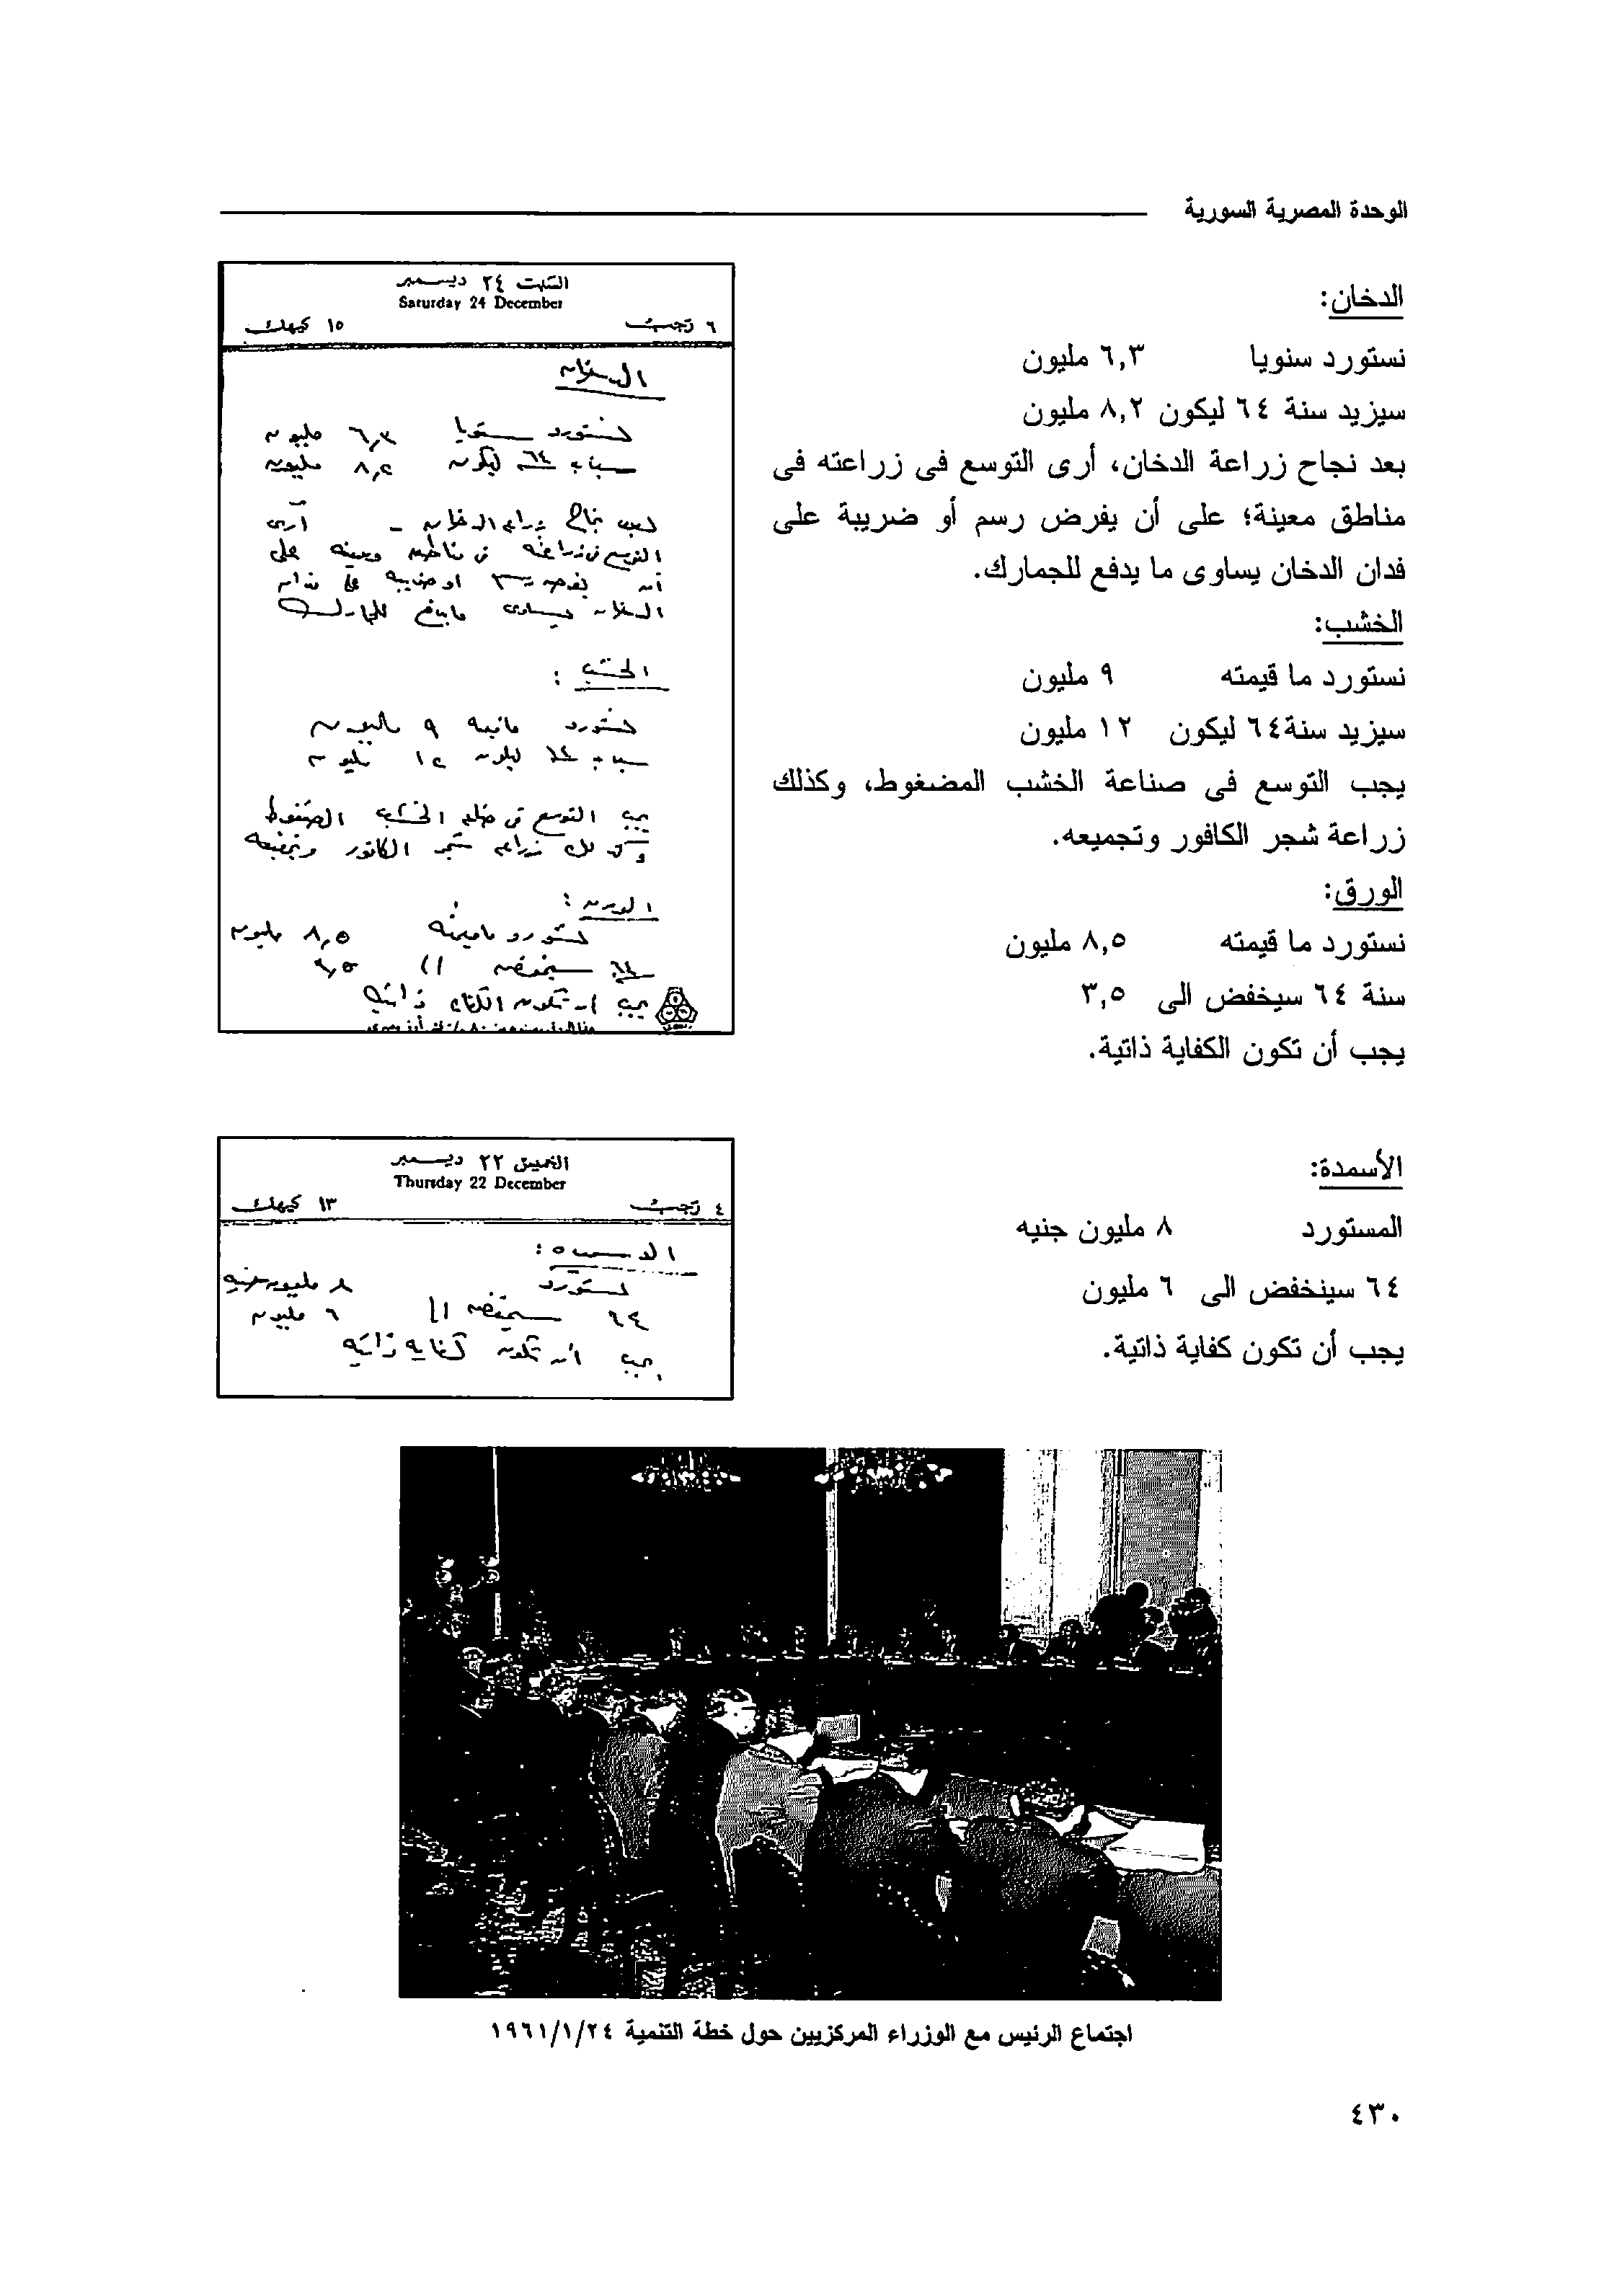 الوحدة المصرية السورية
الدخان:
نستورد سنويا ٦,٣ مليون
سيزيد سنة ٦٤ ليكون ٨,٢ مليون
بعد نجاح زراعة الدخان، أرى التوسع فى زراعته فى
مناطق معينة؛ على أن يفرض رسم أو ضريبة على
فدان الدخان يساوى ما يدفع للجمارك.
الخشب:
نستورد ما قيمته ٩ مليون
سيزيد سنة٦٤ ليكون ١٢ مليون
يجب التوسع فى صناعة الخشب المضغوط، وكذلك
زراعة شجر الكافور وتجميعه.
الورق:
نستورد ما قيمته ٨,٥ مليون
سنة ٦٤ سيخفض الى ٣,٥
يجب أن تكون الكفاية ذاتية.
السبت ٢٤ ديسمبر
Saturday 24 December
٦ رجب ١٥ كيهك
الدخان
نستورد سنويا ٦,٣ مليون
٦٤ ليكون ٨,٢ مليون
بعد نجاح زراعة الدخان - أرى
التوسع فى زراعته فى مناطق معينه على
أن يفرض رسم او ضريبه على فدان
الدخان يساوى ما يدفع للجمارك
الخشب :
نستورد ما قيمه ٩ مليون
٦٤ ليكون ١٢ مليون
يجب التوسع فى صناعه الخشب المضغوط
وكذلك زراعه شجر الكافور وتجميعه
الورق :
نستورد ما قيمته ٨,٥ مليون
٦٤ سيخفض الى ٣,٥
يجب أن تكون الكفايه ذاتيه
الأسمدة:
المستورد ٨ مليون جنيه
٦٤ سينخفض الى ٦ مليون
يجب أن تكون كفاية ذاتية.
الخميس ٢٢ ديسمبر
Thursday 22 December
٤ رجب ١٣ كيهك
نستورد ٨ مليون جنيه
٦٤ سيخفض الى ٦ مليون
يجب أن تكون كفايه ذاتيه
اجتماع الرئيس مع الوزراء المركزيين حول خطة التنمية ١٩٦١/١/٢٤
٤٣٠